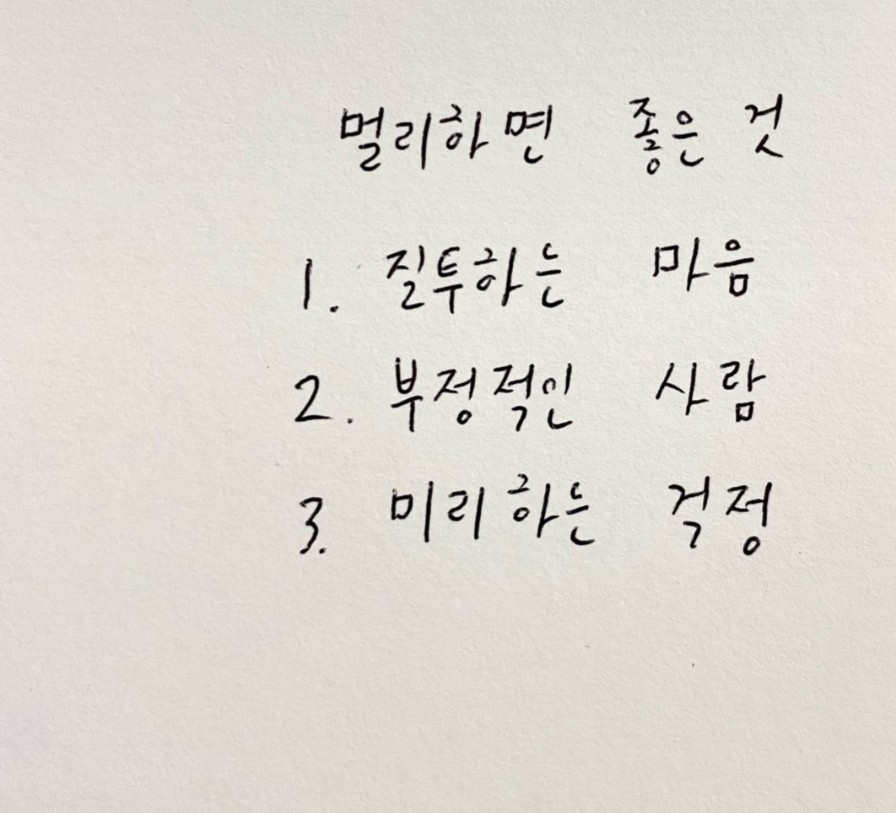 멀리하면 좋은 것
1. 질투하는 마음
2. 부정적인 사람
3. 미리하는 걱정